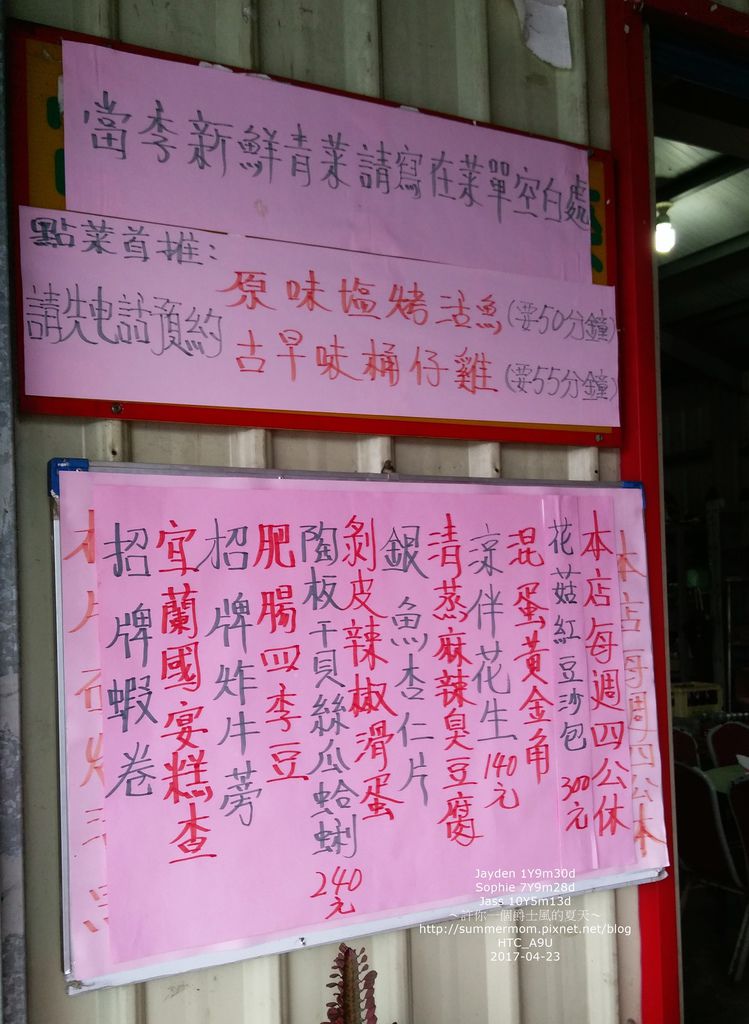 當季新鮮青菜請寫在菜單空白處
點菜首推:
請先電話預約
原味塩烤活魚(要50分鐘)
古早味桶仔雞(要55分鐘)
本店每週四公休
本店每週四公休
花菇紅豆沙包 300元
混蛋黃金角
涼伴花生 140元
清蒸麻辣臭豆腐
銀魚杏仁片
剝皮辣椒滑蛋
陶板干貝絲瓜蛤蜊 240元
肥腸四季豆
招牌炸牛蒡
宜蘭國宴糕查
招牌蝦卷
Jayden 1Y9m30d
Sophie 7Y9m28d
Jass 10Y5m13d
～許你一個爵士風的夏天～
http://summermom.pixnet.net/blog
HTC_A9U
2017-04-23